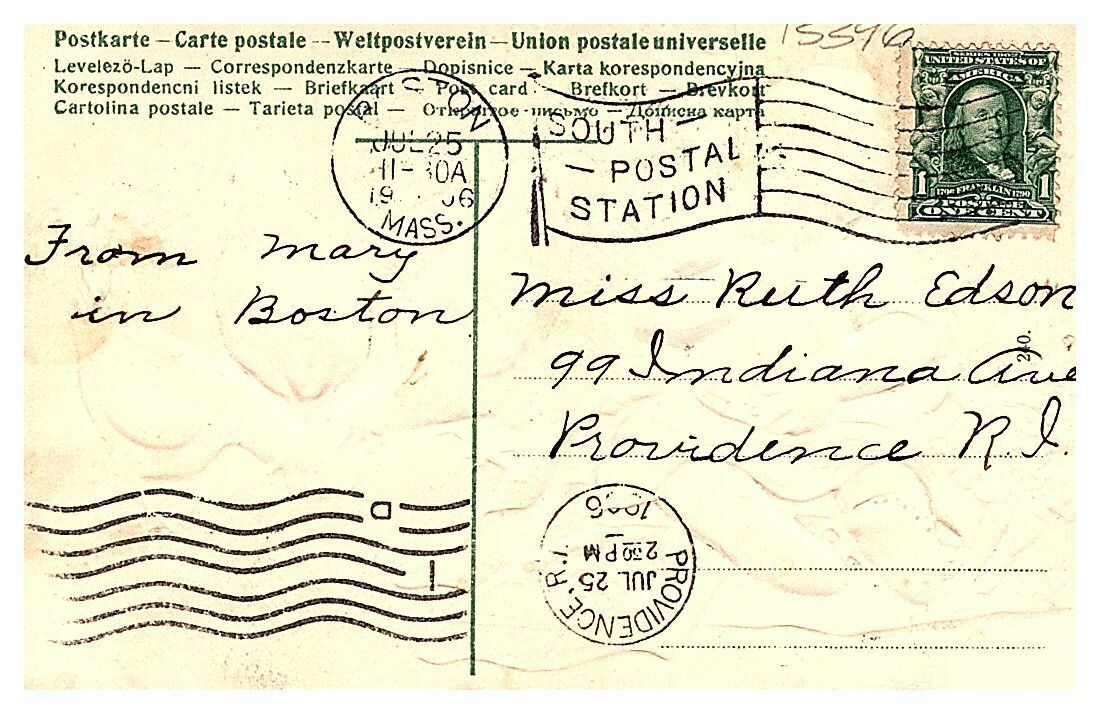 Postkarte — Carte postale — Weltpostverein — Union postale universelle
Levelezö-Lap — Correspondenzkarte — Dopisnice — Karta korespondencyjna
Korespondencni listek — Briefkaart — Post card — Brefkort — Brevkort
Cartolina postale — Tarieta postal — Открытое письмо — Дописна карта
15596
UNITED STATES OF
AMERICA
1 1706 FRANKLIN 1790 1
POSTAGE
ONE CENT
BOSTON
JUL 25
11-30A
1906
MASS.
SOUTH —
— POSTAL
STATION
From Mary
in Boston
Miss Ruth Edson
240.
99 Indiana Ave
Providence R.I.
D
1
PROVIDENCE, R.I.
JUL 25
2 30 PM
1906